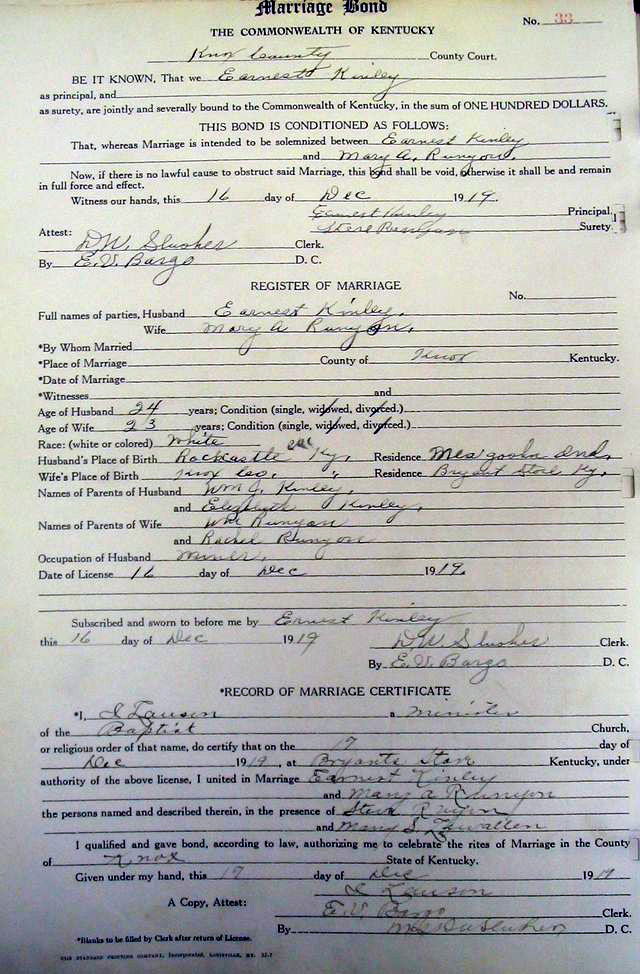 Marriage Bond
No. 33
THE COMMONWEALTH OF KENTUCKY
Knox County County Court.
BE IT KNOWN, That we Earnest Kinley
as principal, and
as surety, are jointly and severally bound to the Commonwealth of Kentucky, in the sum of ONE HUNDRED DOLLARS.
THIS BOND IS CONDITIONED AS FOLLOWS:
That, whereas Marriage is intended to be solemnized between Earnest Kinley
and Mary A. Runyon.
Now, if there is no lawful cause to obstruct said Marriage, this bond shall be void, otherwise it shall be and remain
in full force and effect.
Witness our hands, this 16 day of Dec 1919.
Earnest Kinley Principal.
Steve Runyon Surety.
Attest: D.W. Slusher Clerk.
By E.V. Bargo D. C.
REGISTER OF MARRIAGE
No.
Full names of parties, Husband Earnest Kinley.
Wife Mary A Runyon.
*By Whom Married
*Place of Marriage County of Knox Kentucky.
*Date of Marriage
*Witnesses and
Age of Husband 24 years; Condition (single, widowed, divorced.)
Age of Wife 23 years; Condition (single, widowed, divorced.)
Race: (white or colored) White
Husband's Place of Birth Rockcastle Ky. Residence
Wife's Place of Birth Knox Co. " Residence Bryant Store Ky.
Names of Parents of Husband Wm J. Kinley.
and Elizabeth Kinley.
Names of Parents of Wife Wm Runyon
and Rachel Runyon
Occupation of Husband Miner.
Date of License 16 day of Dec 1919.
Subscribed and sworn to before me by Ernest Kinley
this 16 day of Dec 1919 D.W. Slusher Clerk.
By E.V. Bargo D. C.
*RECORD OF MARRIAGE CERTIFICATE
*I, J Lawson a Minister
of the Baptist Church,
or religious order of that name, do certify that on the 17 day of
Dec 1919, at Bryants Store Kentucky, under
authority of the above license, I united in Marriage Earnest Kinley
and Mary A Runyon
the persons named and described therein, in the presence of Steve Runyon
and Mary S.
I qualified and gave bond, according to law, authorizing me to celebrate the rites of Marriage in the County
of Knox State of Kentucky.
Given under my hand, this 17 day of Dec 1919
J Lawson
A Copy, Attest: E.V. Bargo Clerk.
By D. C.
*Blanks to be filled by Clerk after return of License.
THE STANDARD PRINTING COMPANY, Incorporated, LOUISVILLE, KY.